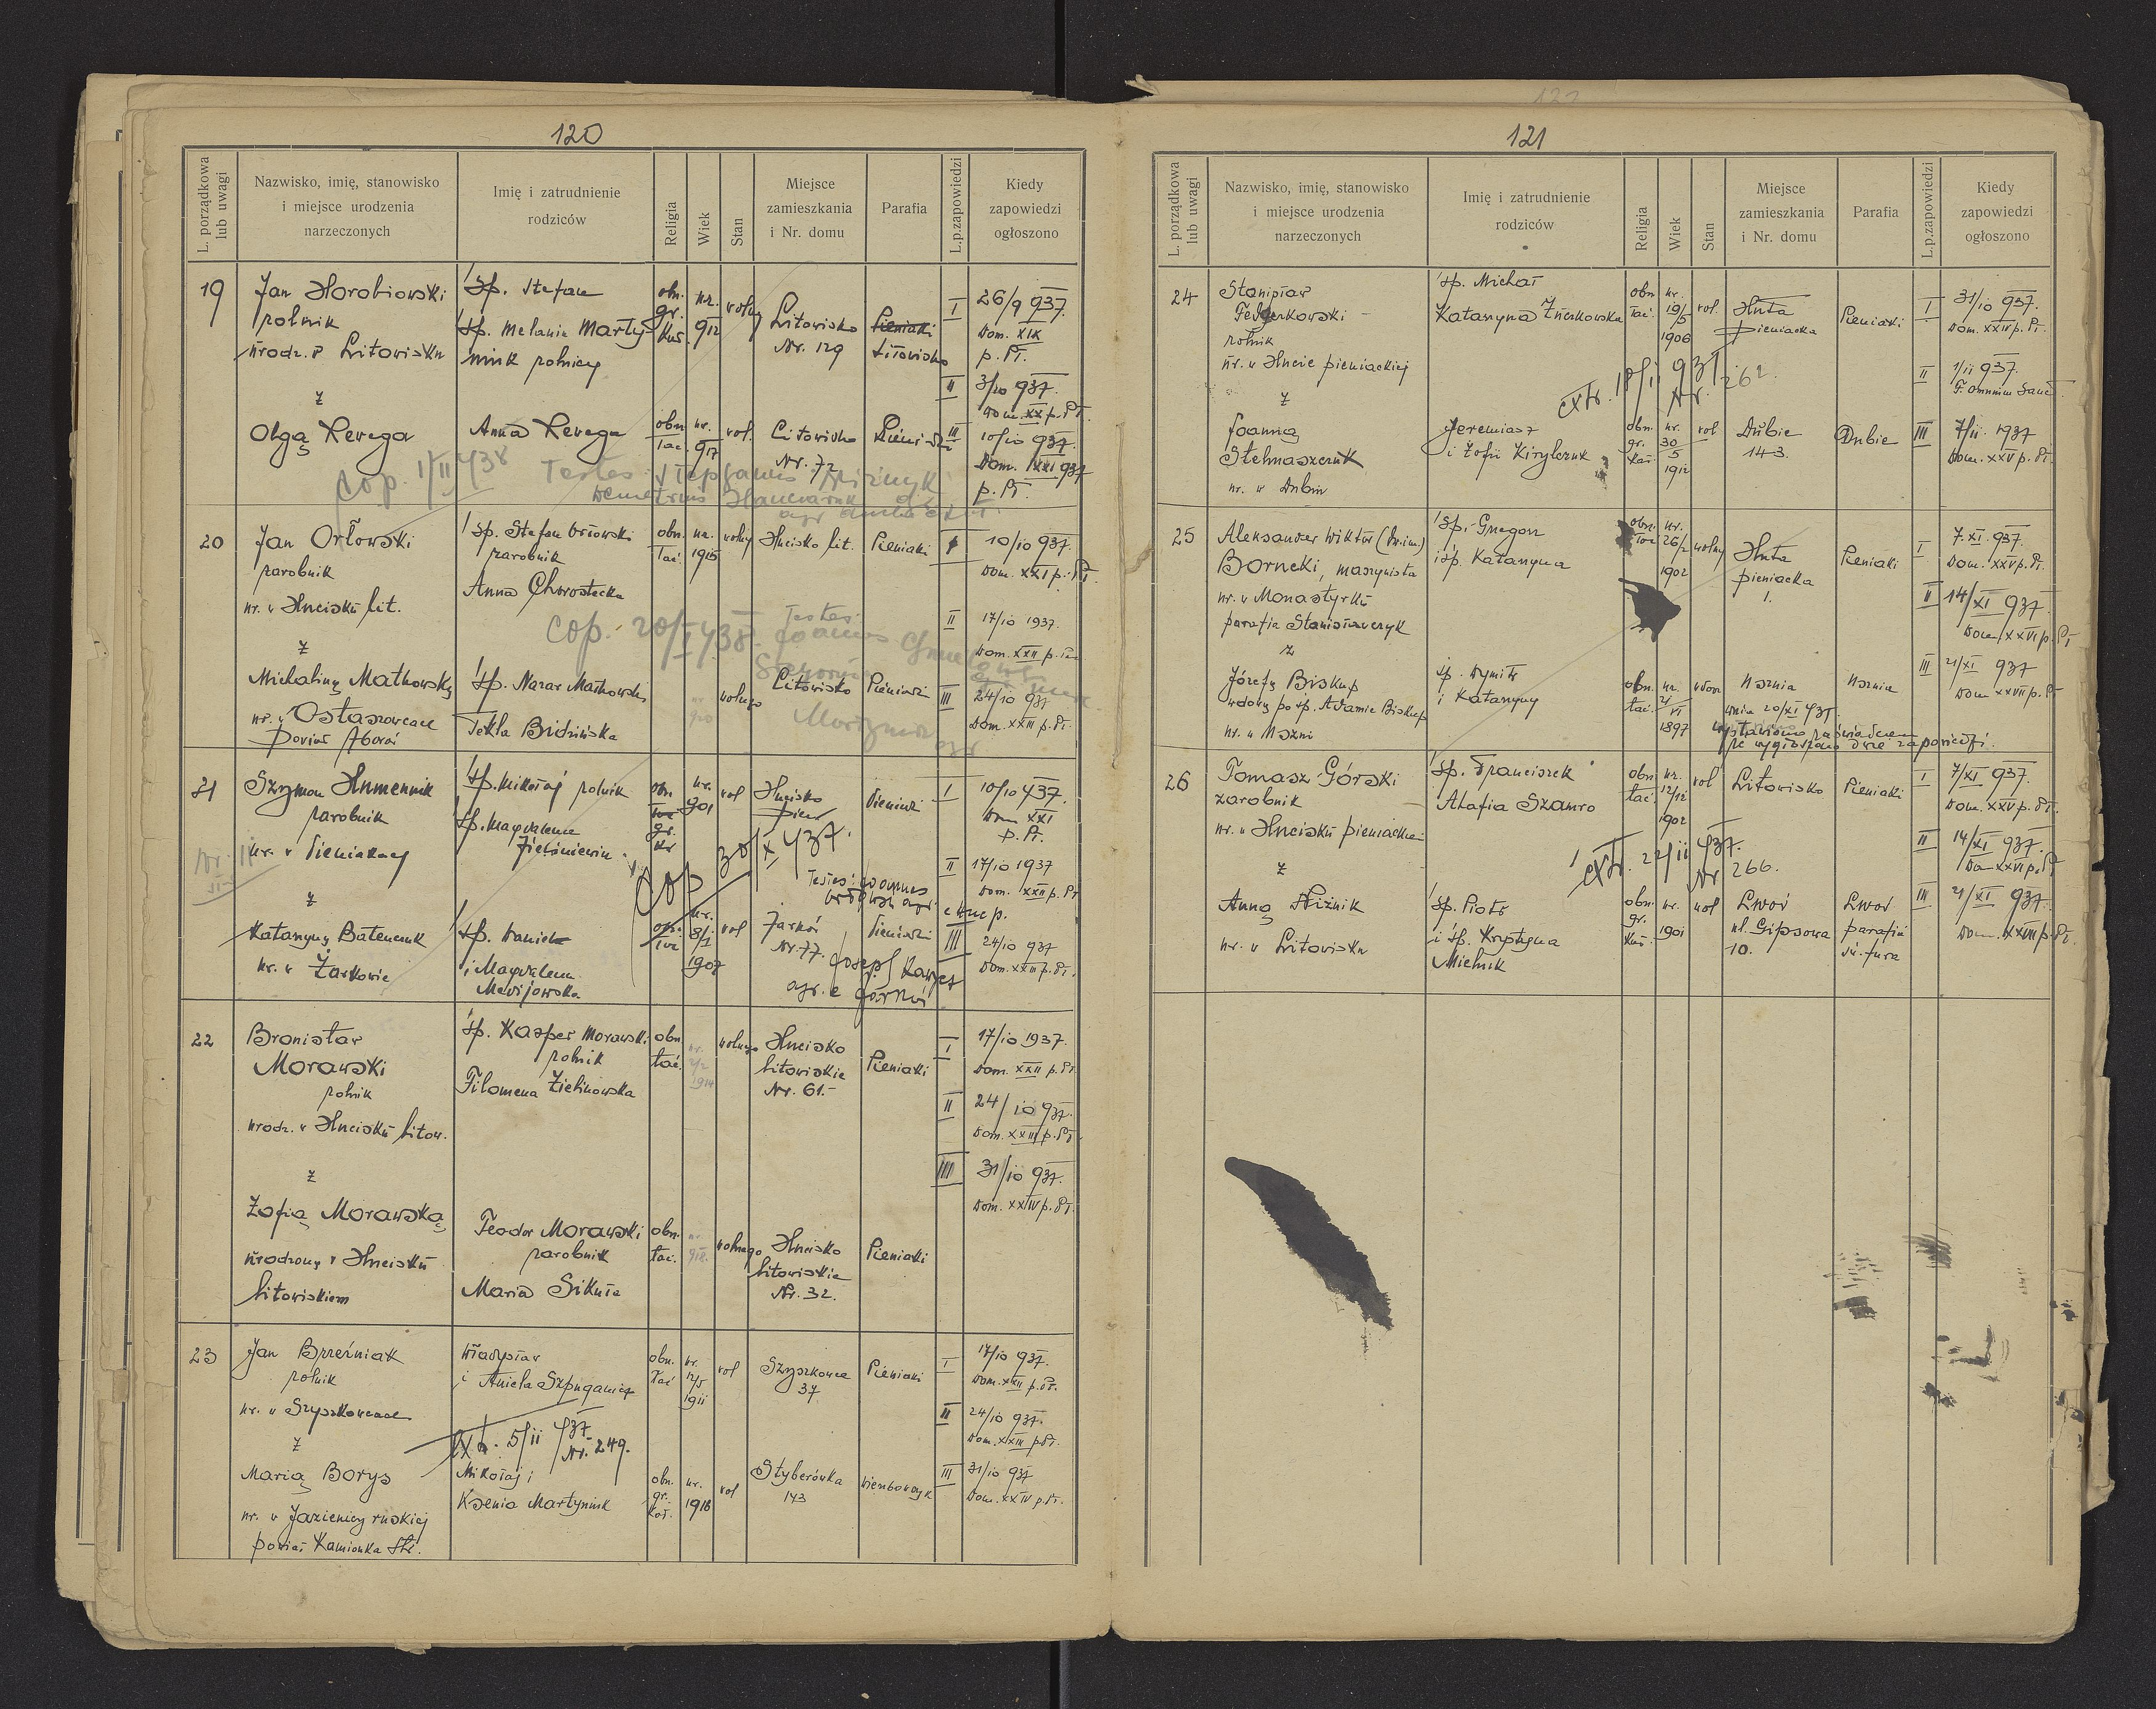 120
L. porządkowa lub uwagi
Nazwisko, imię, stanowisko
i miejsce urodzenia
narzeczonych
Imię i zatrudnienie
rodziców
Religia
Wiek
Stan
Miejsce
zamieszkania
i Nr. domu
Parafia
L.p.zapowiedzi
Kiedy
zapowiedzi
ogłoszono
19
Jan Horobiowski
rolnik
urodz. w Litowisku
z
Olgą Rerega
śp. Stefan
śp. Melania Marty-
niuk rolnicy
Anna Rerega
obn. gr. kat.
ur. 912
wolny
Litowisko
Nr. 129
Pieniaki
Litowisko
I 26/9 937.
Dom. XIX
p. Pt.
II 3/10 937.
Dom. XX p. Pt.
obn. łac.
ur. 917
wol.
Litowisko
Nr. 72
Pieniaki
III 10/10 937.
Dom. XXI 937
p. Pt.
cop. 1/II 938
Testes: Stephanus
Demetrius
20
Jan Orłowski
zarobnik
ur. w Hucisku lit.
z
Michaliną Matkowską
ur. w Ostaszowcach
powiat Zborów
śp. Stefan Orłowski
zarobnik
Anna Chorostecka
śp. Nazar Matkowski
Tekla Bidzińska
obn. łac.
ur. 1915
wolny
Hucisko lit.
Pieniaki
I 10/10 937.
Dom. XXI p. Pt.
II 17/10 1937.
Dom. XXII p. Pt.
cop. 20/I 938.
Testes
Joannes
wolnego
Litowisko
Pieniaki
III 24/10 937
Dom. XXIII p. Pt.
21
Szymon Humeniuk
zarobnik
ur. w Pieniakach
z
Katarzyną Batenczuk
ur. w Żarkowie
śp. Mikołaj rolnik
śp. Magdalena
śp. Daniel
i Magdalena
obn. gr. kat.
ur. 901
wol
Hucisko
pien.
Pieniaki
I 10/10 937.
Dom XXI
p. Pt.
cop 30/X 937.
Testes: Joannes
II 17/10 1937
Dom. XXII p. Pt.
ur. 8/1 1907
wol
Żarków
Nr. 77.
Pieniaki
III 24/10 937
Dom. XXIII p. Pt.
Joseph
agr. e Żarków
22
Bronisław
Morawski
rolnik
urodz. w Hucisku litow.
z
Zofią Morawską
urodzoną w Hucisku
litowiskiem
śp. Kasper Morawski
rolnik
Filomena Zielinowska
Teodor Morawski
zarobnik
Maria Sikuła
obn. łac.
wolnego
Hucisko
litowiskie
Nr. 61.-
Pieniaki
I 17/10 1937.
Dom. XXII p. Pt.
II 24/10 937.
Dom. XXIII p. Pt.
III 31/10 937.
Dom. XXIV p. Pt.
obn. łac.
wolnego
Hucisko
litowiskie
Nr. 32.
Pieniaki
23
Jan Brzeźniak
rolnik
ur. w Szyszkowcach
z
Marią Borys
ur. w Jazienicy ruskiej
powiat Kamionka Str.
Władysław
i Aniela
Extr. 5/11 937
Nr. 249.
Mikołaj i
Ksenia Martyniuk
obn. łac
ur. 12/5 1911
wol
Szyszkowce
37.
Pieniaki
I 17/10 937.
Dom. XXII p. Pt.
II 24/10 937.
Dom. XXIII p. Pt.
obn. gr. kat.
ur. 1918
wol
Styberówka
143
III 31/10 937
Dom. XXIV p. Pt.
121
L. porządkowa lub uwagi
Nazwisko, imię, stanowisko
i miejsce urodzenia
narzeczonych
Imię i zatrudnienie
rodziców
Religia
Wiek
Stan
Miejsce
zamieszkania
i Nr. domu
Parafia
L.p.zapowiedzi
Kiedy
zapowiedzi
ogłoszono
24
Stanisław
Federkowski
rolnik
ur. w Hucie pieniackiej
z
Joanną
Stelmaszczuk
ur. w Dubiu
śp. Michał
Katarzyna
Jeremiasz
i Zofii Kirylczuk
obn. łac.
ur. 19/5 1906
wol.
Huta
pieniacka
Pieniaki
I 31/10 937.
Dom. XXIV p. Pt.
II 1/11 937.
F. Omnium Sanct.
extr. 18/11 937
Nr. 262.
obn. gr. kat.
ur. 30/5 1912
wol
Dubie
143.
Dubie
III 7/11. 1937
Dom. XXV p. Pt.
25
Aleksander Wiktor (dw. im.)
Borncki, maszynista
ur. w Monastyrku
parafia Stanisławczyk
z
Józefą Biskup
wdową po śp. Adamie Biskup
ur. w Uszni
śp. Grzegorz
i śp. Katarzyna
śp. Dymitr
i Katarzyny
obn. łac
ur. 26/2 1902
wolny
Huta
pieniacka
1.
Pieniaki
I 7.XI.937.
Dom. XXV p. Pt.
II 14/XI 937.
Dom. XXVI p. Pt
obn. łac.
ur. 1897
wdow
Usznia
Usznia
III 21/XI 937
Dom XXVII p. Pt
dnia 20/XI 937
wystawiono zaświadczenie
że wygłoszono dwie zapowiedzi.
26
Tomasz Górski
zarobnik
ur. w Hucisku pieniackim
z
Anną Niżnik
ur. w Litowisku
śp. Franciszek
Atafia Szamro
śp. Piotr
i śp. Krystyna
Mielnik
obn. łac.
ur. 12/12 1902
wol
Litowisko
Pieniaki
I 7/XI 937.
Dom. XXV p. Pt.
II 14/XI 937.
Dom XXVI p. Pt
extr. 22/11 937.
Nr 266.
obn. gr. kat.
ur. 1901
wol
Lwów
ul. Gipsowa
10.
Lwów
parafia
św. Jura
III 21/XI 937.
Dom. XXVII p. Pt.